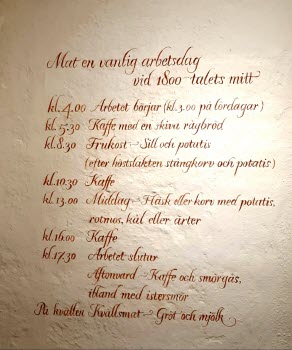 Mat en vanlig arbetsdag
vid 1800-talets mitt
kl.4.00 Arbetet börjar (kl.3.00 på lördagar)
kl.5.30 Kaffe med en skiva rågbröd
kl.8.30 Frukost - Sill och potatis
(efter höstslakten stångkorv och potatis)
kl.10.30 Kaffe
kl.13.00 Middag - Fläsk eller korv med potatis,
rotmos, kål eller ärter
kl.16.00 Kaffe
kl.17.30 Arbetet slutar
Aftonvard - Kaffe och smörgås,
ibland med istersmör
På kvällen Kvällsmat - Gröt och mjölk